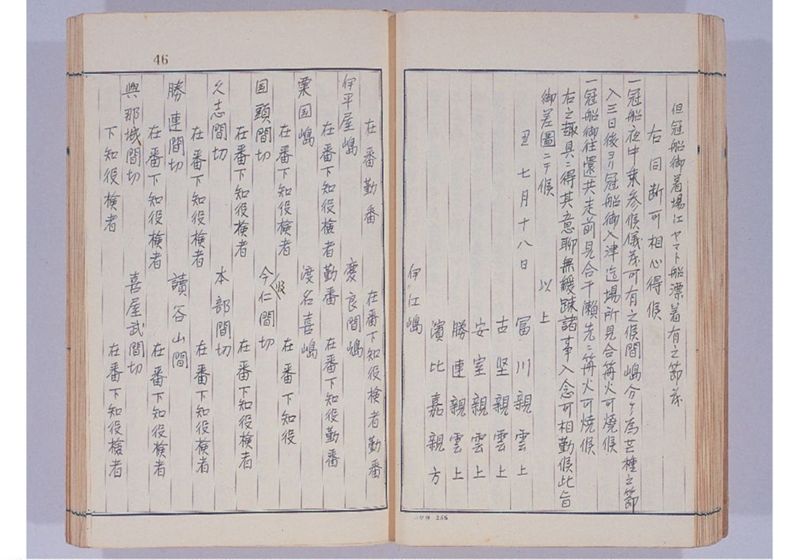 但冠船御着場江ヤマト船漂着有之節茂
右同断可相心得候
一冠船夜中乗参候儀茂可有之候間嶋分ヶ为芒種之節
入三日後ヨリ冠船御入津迄場所見合篝火可焼候
一冠船御往還共走前見合干瀬先ニ篝火可焼候
右之趣具ニ得其意聊無緩疎諸事入念可相勤候此旨
御差圖ニテ候 以上
丑七月十八日
冨川親雲上
古堅親雲上
安室親雲上
勝連親雲上
濱比嘉親方
伊江嶋
46
在番勤番 在番下知役検者勤番
伊平屋嶋 慶良間嶋
在番下知役検者勤番 在番下知役勤番
粟国嶋 渡名喜嶋
在番下知役検者 在番下知役
国頭間切 今帰仁間切
在番下知役検者 在番下知役検者
久志間切 本部間切
在番下知役検者 在番下知役検者
勝連間切 讀谷山間
在番下知役検者 在番下知役検者
與那城間切 喜屋武間切
下知役検者 在番下知役検者